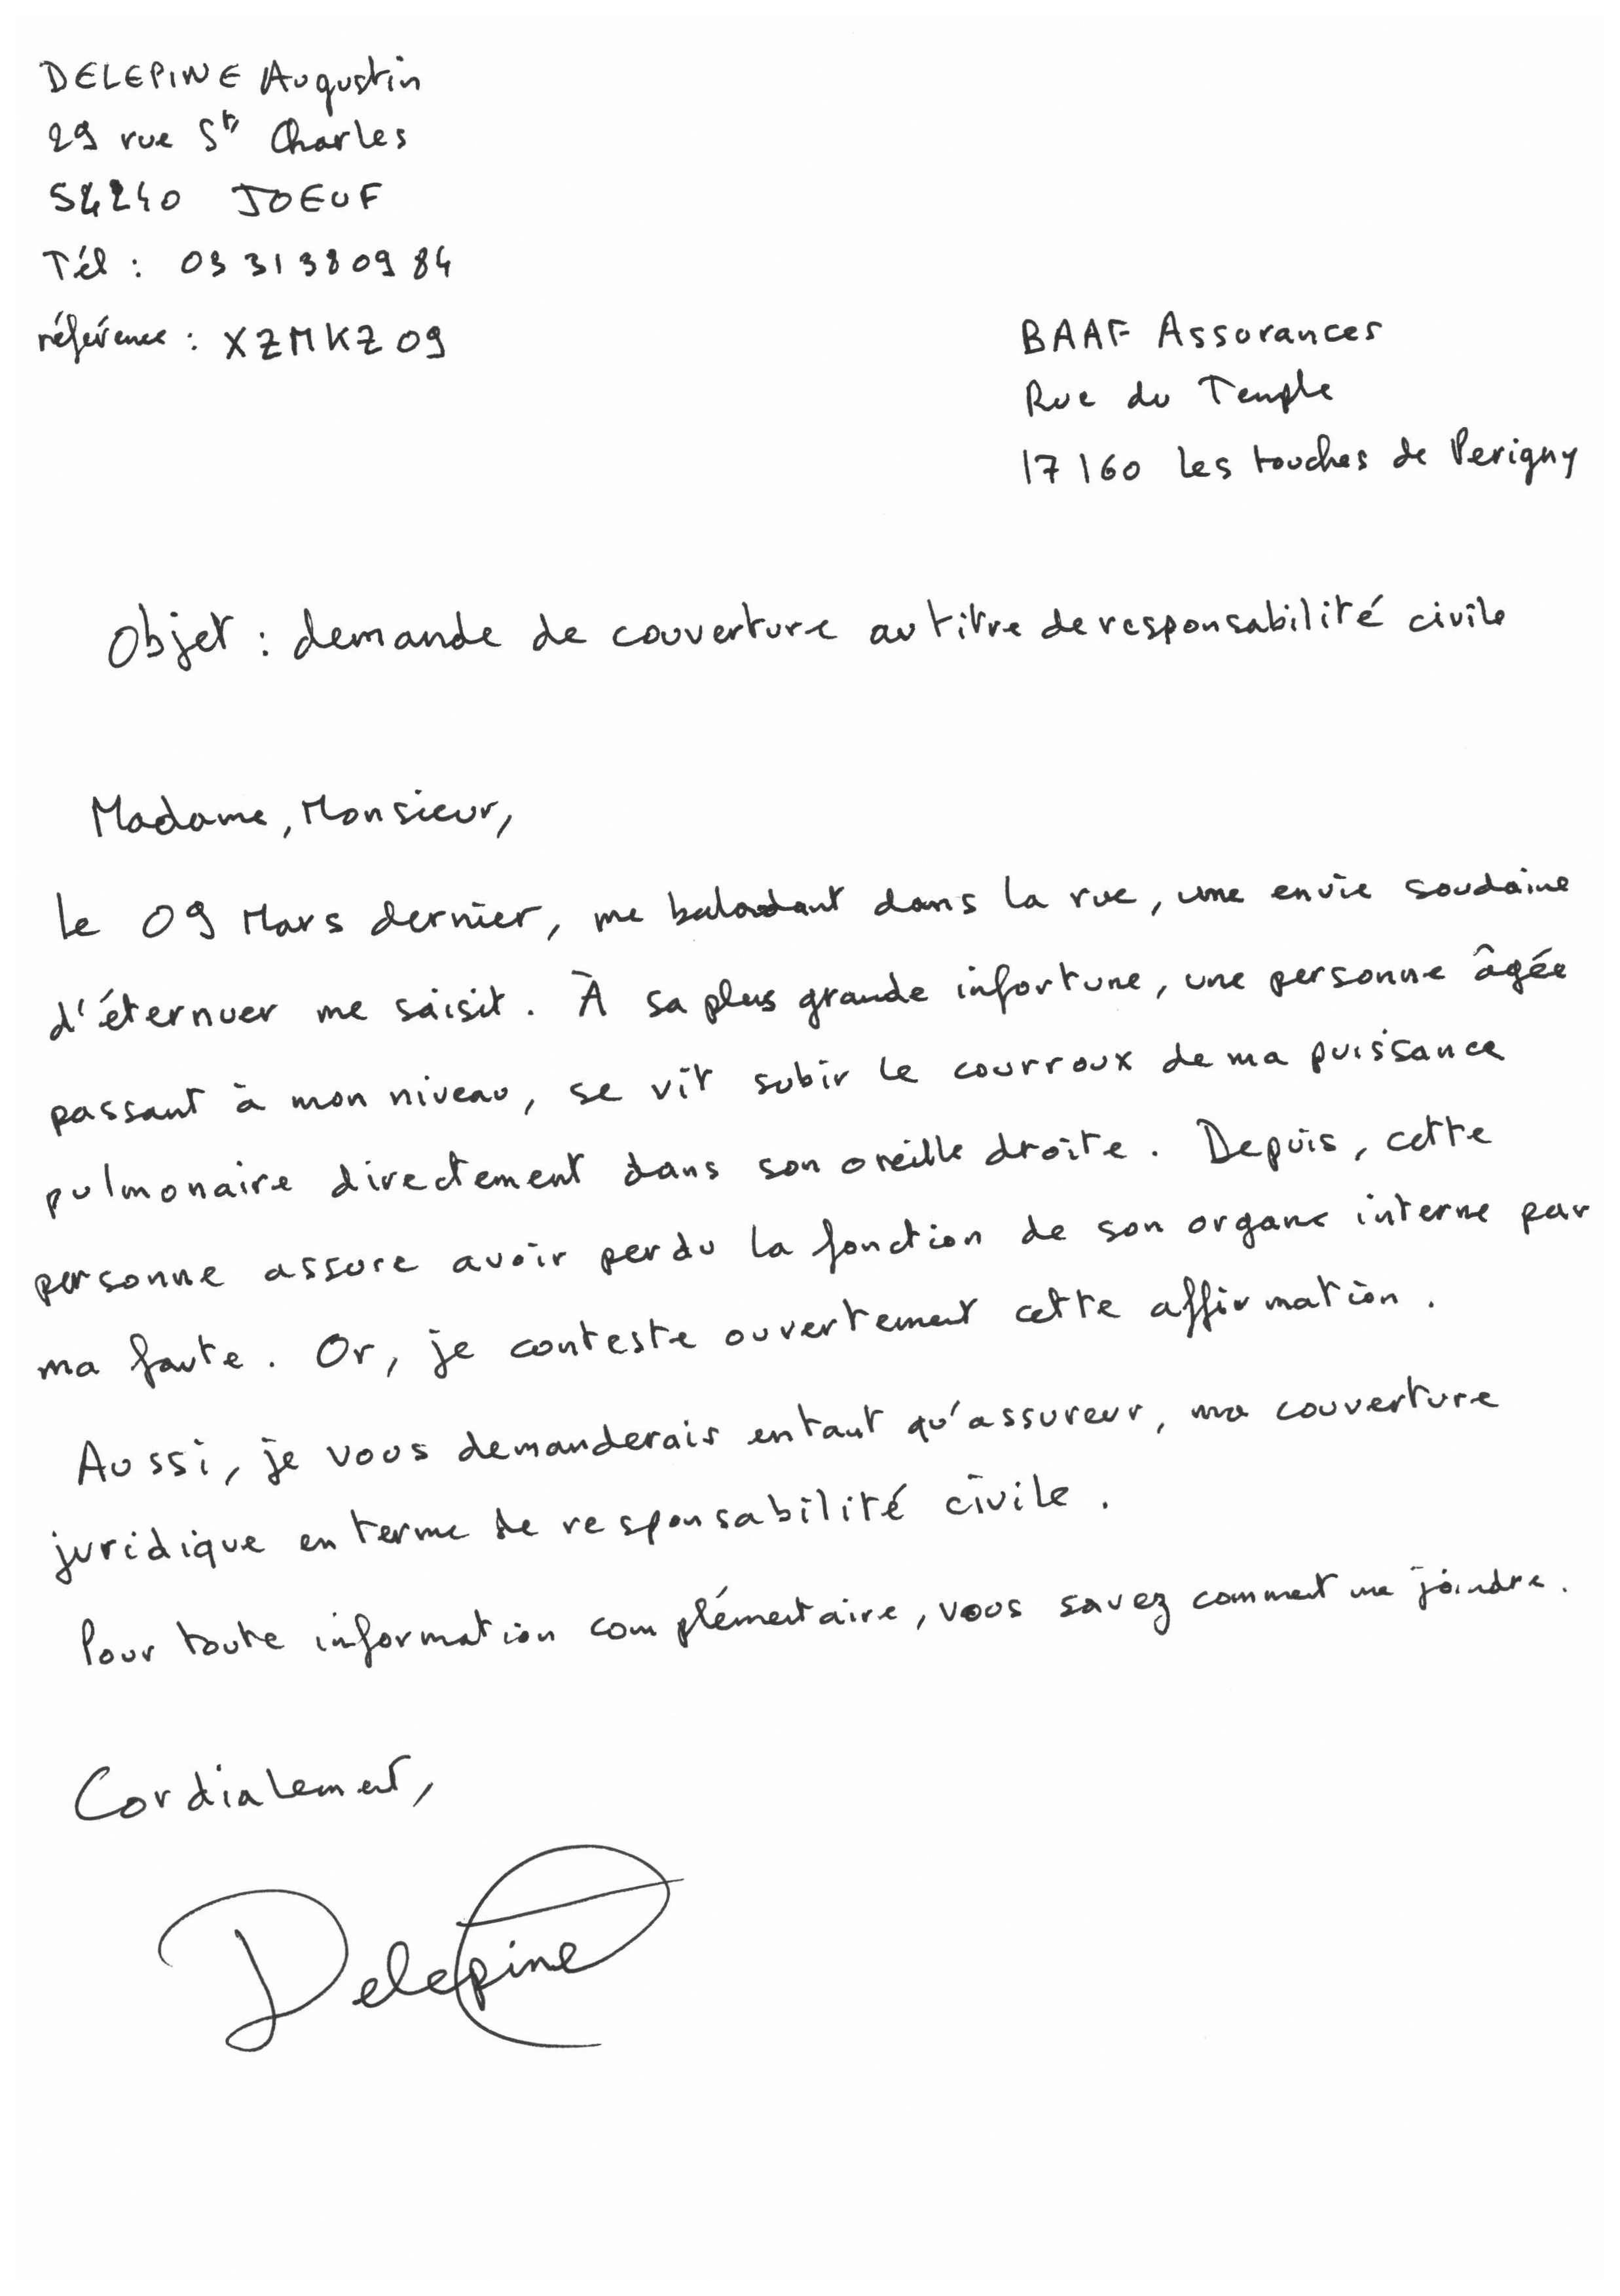 DELEPINE Augustin
29 rue St Charles
54240 JOEUF
Tél : 03 31 38 09 84
référence : XZMKZ09
BAAF Assurances
Rue du Temple
17160 les touches de Perigny
Objet : demande de couverture au titre de responsabilité civile
Madame, Monsieur,
Le 09 Mars dernier, me baladant dans la rue, une envie soudaine
d'éternuer me saisit. À sa plus grande infortune, une personne âgée
passant à mon niveau, se vit subir le courroux de ma puissance
pulmonaire directement dans son oreille droite. Depuis, cette
personne assure avoir perdu la fonction de son organe interne par
ma faute. Or, je conteste ouvertement cette affirmation.
Aussi, je vous demanderais en tant qu'assureur, ma couverture
juridique en terme de responsabilité civile.
Pour toute information complémentaire, vous savez comment me joindre.
Cordialement,
Delepine